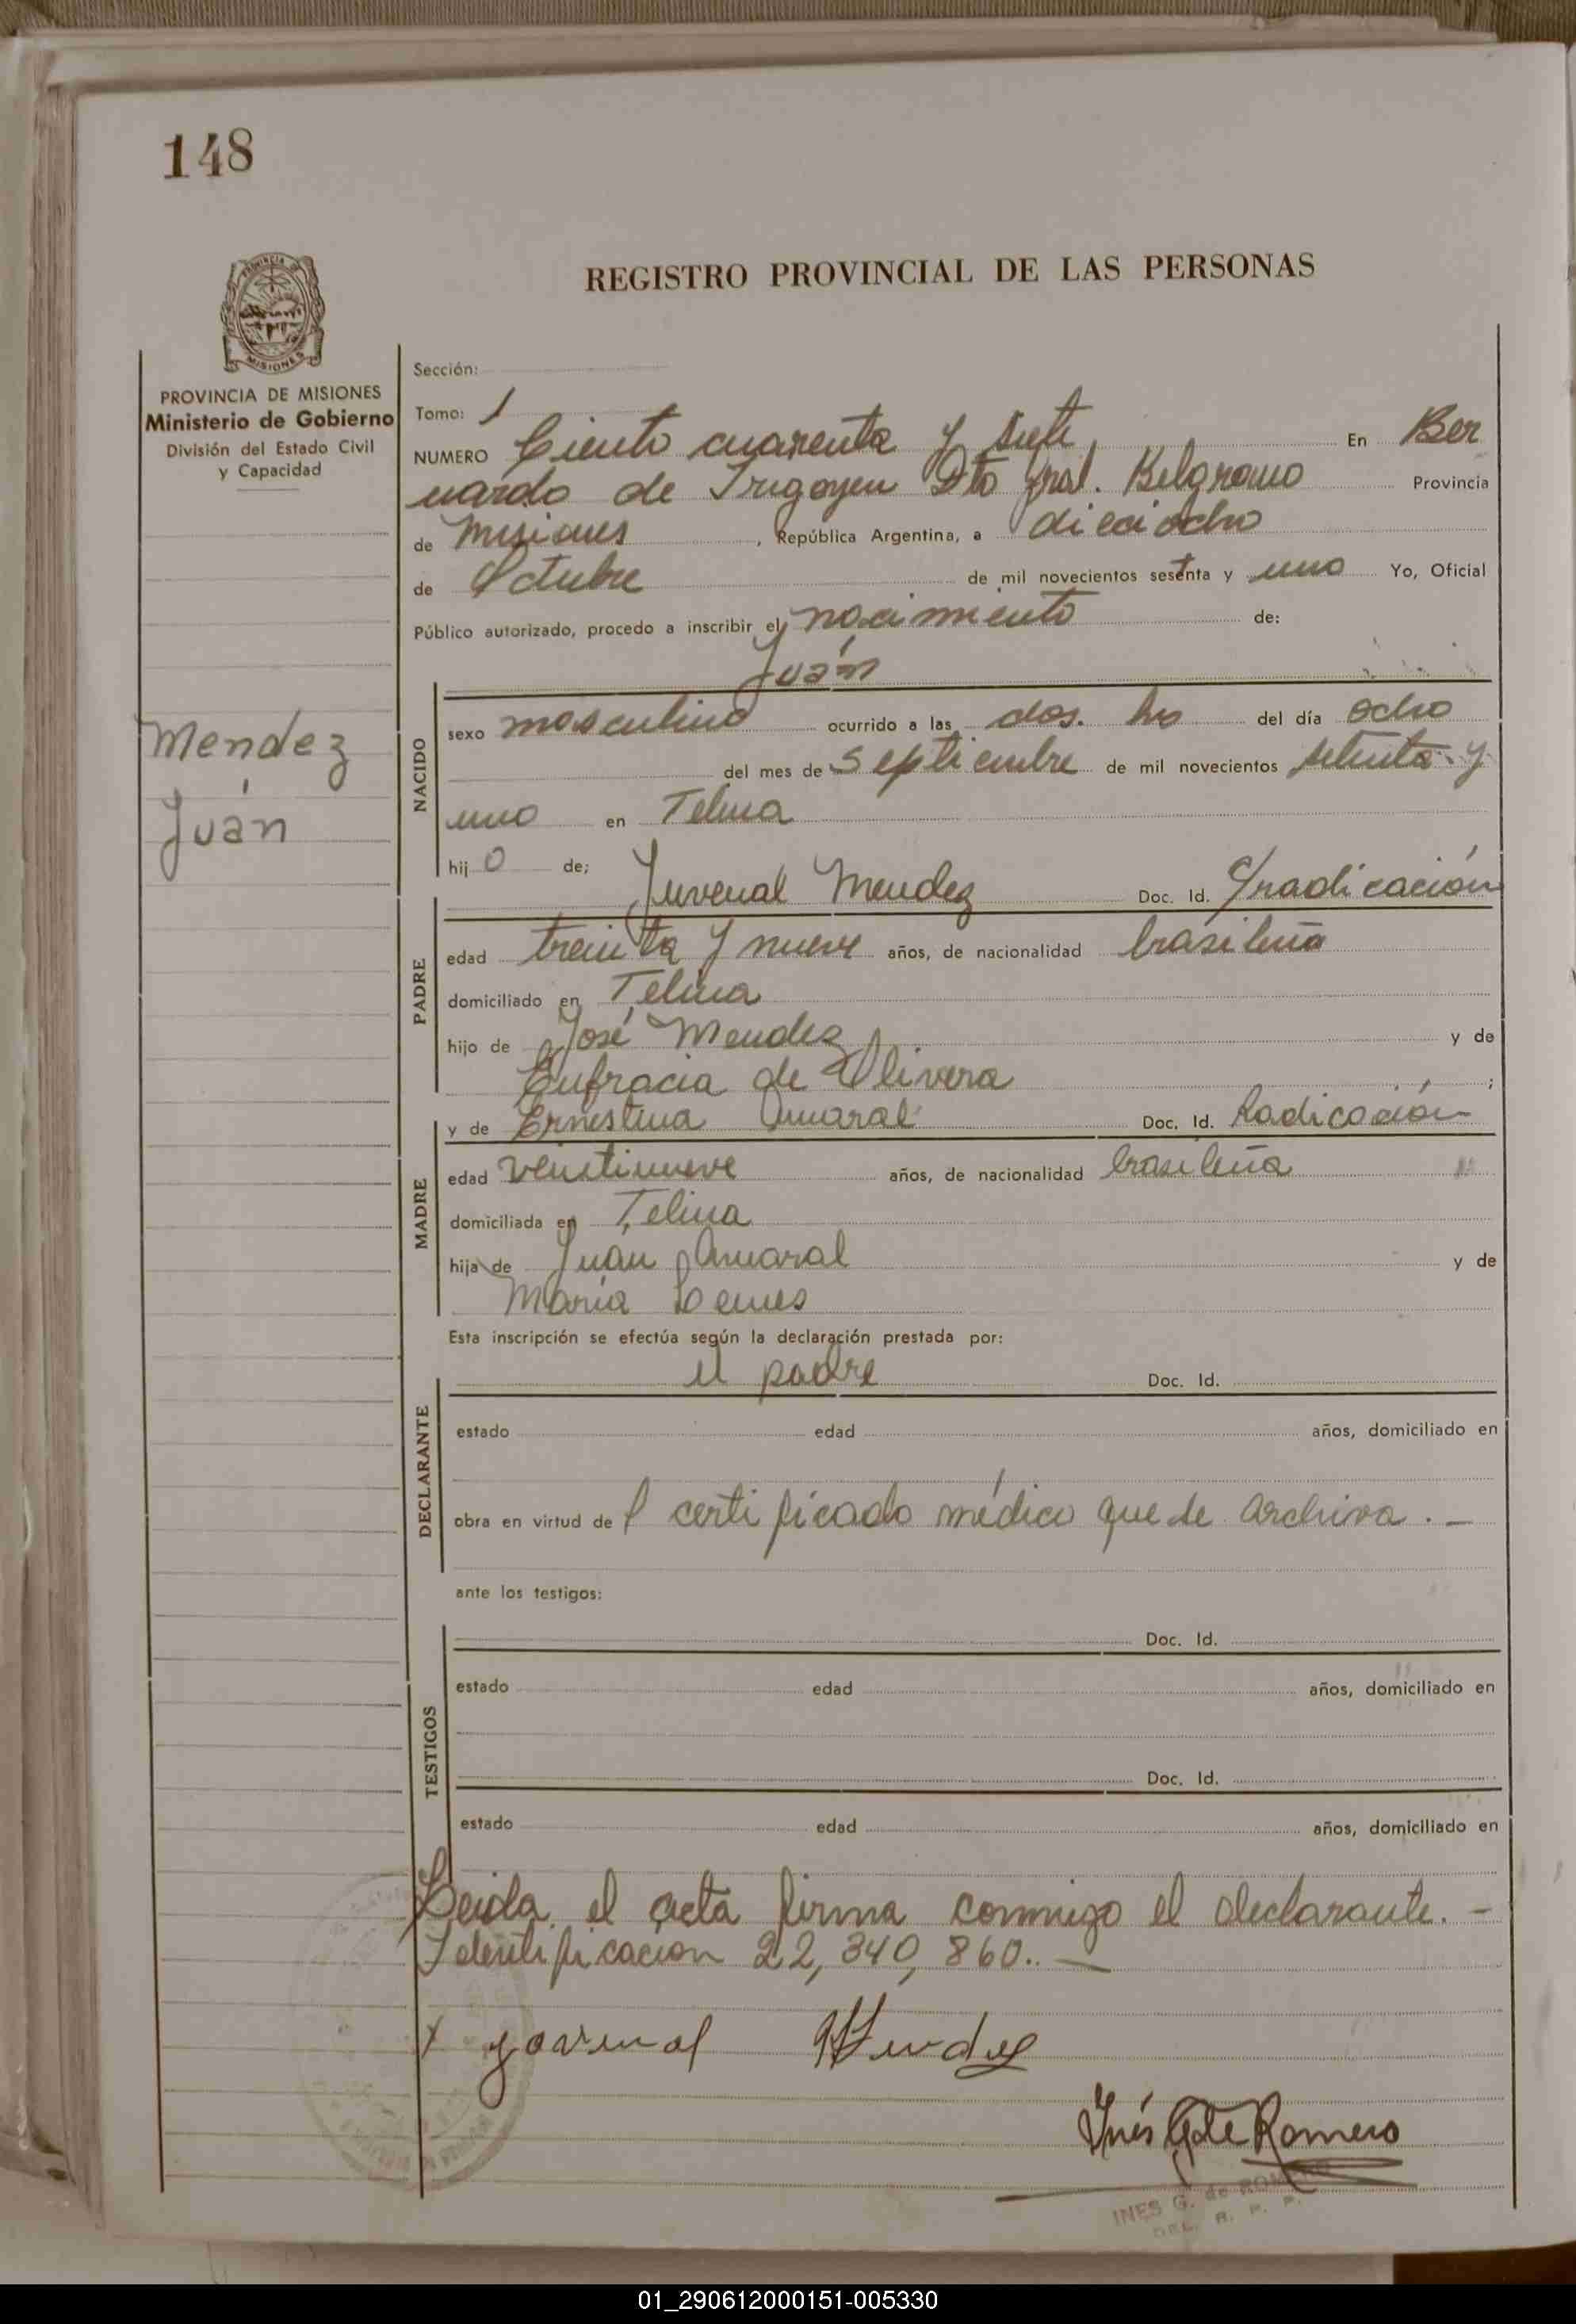 148
REGISTRO PROVINCIAL DE LAS PERSONAS
MISIONES
PROVINCIA DE MISIONES
Ministerio de Gobierno
División del Estado Civil
y Capacidad
Sección:
Tomo: 1
NUMERO Ciento cuarenta y siete, En Ber
nardo de Irigoyen Dto Gral. Belgrano Provincia
de Misiones, República Argentina, a dieciocho
de Octubre de mil novecientos sesenta y uno Yo, Oficial
Público autorizado, procedo a inscribir el nacimiento de:
Juán
Mendez
Juán
NACIDO
sexo masculino ocurrido a las dos. hs del día ocho
del mes de Septiembre de mil novecientos setenta y
uno en Telina
hijo de; Juvenal Mendez Doc. Id. C/radicación
PADRE
edad treinta y nueve años, de nacionalidad brasileña
domiciliado en Telina
hijo de José Mendez y de
Eufracia de Olivera ;
y de Ernestina Amaral Doc. Id. Radicación
MADRE
edad veintinueve años, de nacionalidad brasileña
domiciliada en Telina
hija de Juan Amaral y de
María Lemes
Esta inscripción se efectúa según la declaración prestada por:
el padre Doc. Id.
DECLARANTE
estado edad años, domiciliado en
obra en virtud del certificado médico que se archiva. -
ante los testigos:
Doc. Id.
TESTIGOS
estado edad años, domiciliado en
Doc. Id.
estado edad años, domiciliado en
Leida el acta firma conmigo el declarante. -
Identificacion 22,340,860.. -
x Jovenal Mendez
Inés G de Romero
INES G. de ROMERO
DEL. R. P. P.
01_290612000151-005330